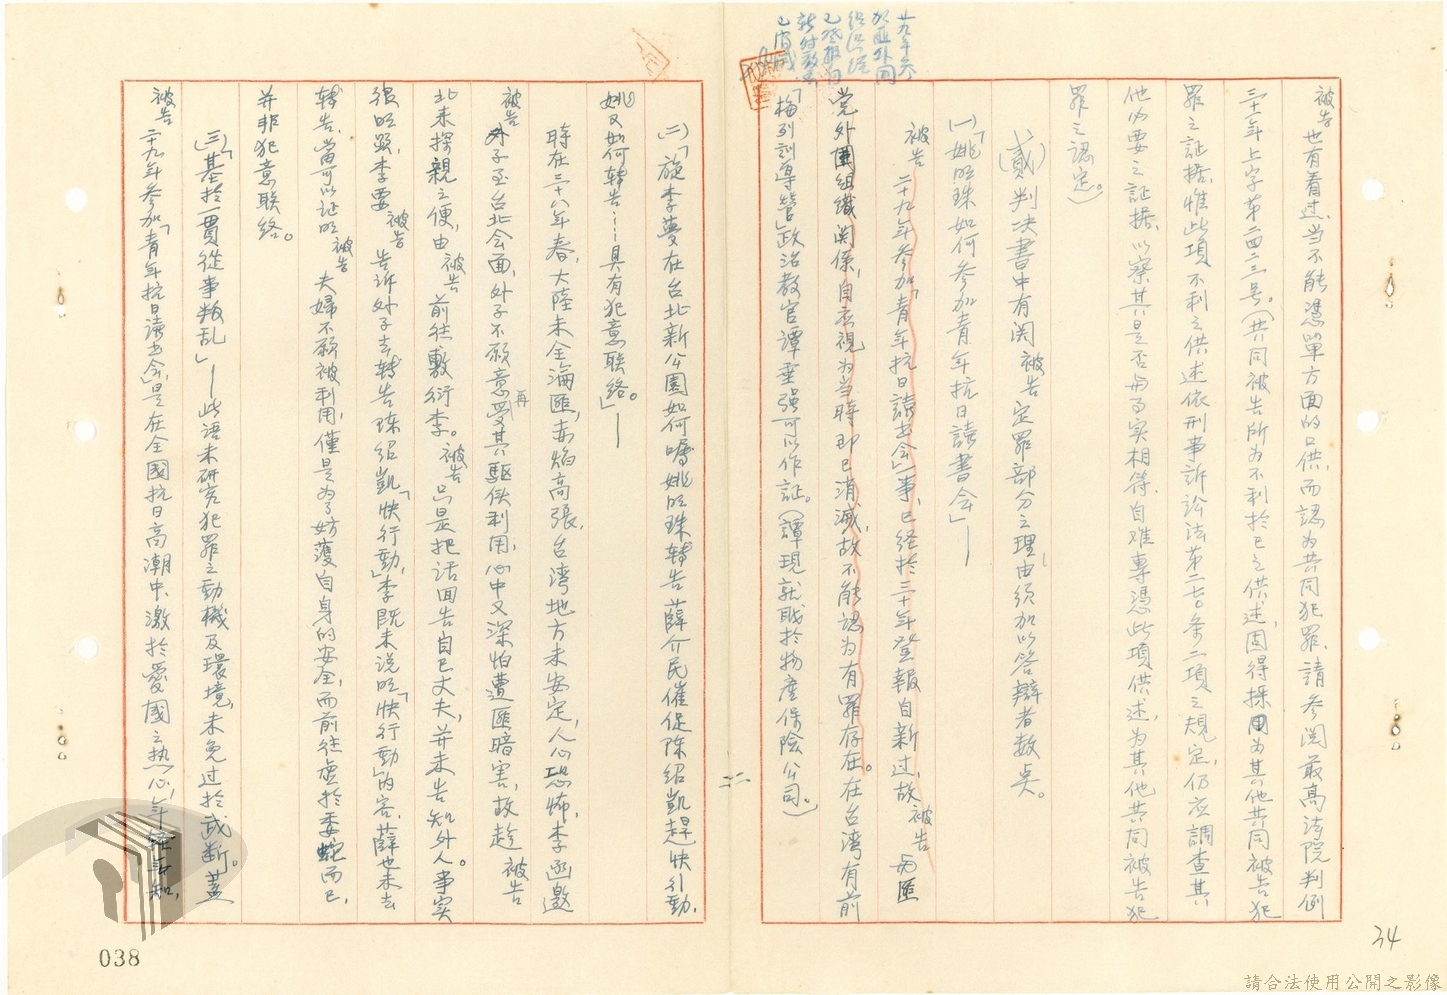 被告也有看过,当不能憑單方面的口供,而認为共同犯罪,請参阅最高法院判例
三十一年上字第二四二三号。(共同被告所为不利於己之供述,固得採用为其他共同被告犯
罪之証据,惟此項不利之供述依刑事訴訟法第二七〇条二項之規定,仍应調查其
他必要之証据,以察其是否与事实相符,自难專憑此項供述,为其他共同被告犯
罪之認定。)
(貳)判决書中有関被告定罪部分之理由须加以答辯者数点。
(一)「姚明珠如何参加青年抗日讀書会」—
被告二十九年参加「青年抗日讀書会」事,已经於三十年登報自新过,故被告与匪
党外圍組織関係,自应視为当時即已消滅,故不能認为有罪存在,在台湾有前
「梅列訓導營」政治教官譚垂强可以作証。(譚現就职於物產保險公司。)
廿九年参
加匪外圍
组织经
已登報自
新付教導
已消滅
(二)「旋李蔓在台北新公園如何囑姚明珠轉告薛介民催促陈绍凱趕快行動,
姚又如何轉告……具有犯意联络。」—
時在三十八年春,大陸未全淪匪,赤焰高張,台湾地方未安定,人心恐怖,李函邀
被告外子至台北会面,外子不願意再受其驅使利用,心中又深怕遭匪暗害,故趁被告
北来探親之便,由被告前往敷衍李。被告只是把话回告自己丈夫,并未告知外人。事实
很明顯,李要被告告诉外子去轉告陈绍凱「快行動」,李既未说明「快行動」内容,薛也未去
轉告,當可以证明被告夫婦不願被利用,僅是为了妨護自身的安全,而前往虛於委蛇而已,
并非犯意联络。
(三)「基於一貫從事叛乱」—此语未研究犯罪之動機及環境,未免过於武断。蓋
被告二十九年参加「青年抗日讀書会」,是在全國抗日高潮中,激於愛國之热心,年轻無知,
二二
34
038
請合法使用公開之影像